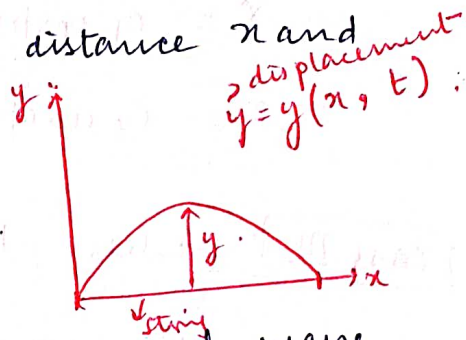 distance x and
displacement
y = y(x, t).
y
y.
x
string